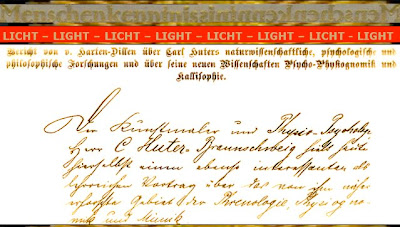 LICHT – LIGHT – LICHT – LIGHT – LICHT – LIGHT – LICHT – LIGHT
Bericht von v. Harten-Dissen über Carl Huters naturwissenschaftliche, psychologische und
philosophische Forschungen und über seine neuen Wissenschaften Psycho-Physiognomik und
Kallisophie.
Der Kunstmaler und Physio-Psycholog
Herr C Huter, Braunschweig hielt heute
hierselbst einen ebenso interessanten als
lehrreichen Vortrag über das von ihm näher
erforschte Gebiet der Phrenologie, Physiogno-
mik und Mimik